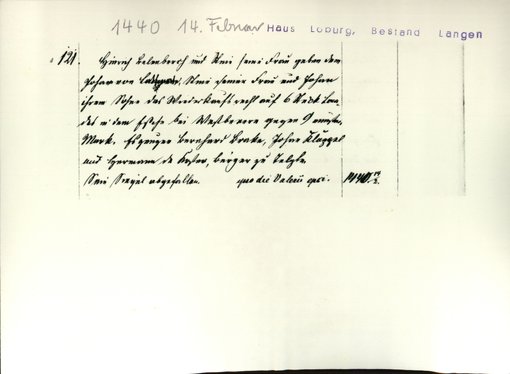 1440 14. Februar Haus Loburg, Bestand Langen
121. Hinrich Belenberch und seine Frau geben dem
Johan von Langen, seiner Frau und Johan
ihrem Sohne das Wiederkaufsrecht auf 6 Stück Lan
des in dem Esche bei Westbevern gegen 9 
Mark. Es zeugen Bernhard Brake, Johan Kluppel
und Hermann de Kester, Bürger zu Telgte.
Sein Siegel abgefallen. quo die Valentini 1440 14/2.